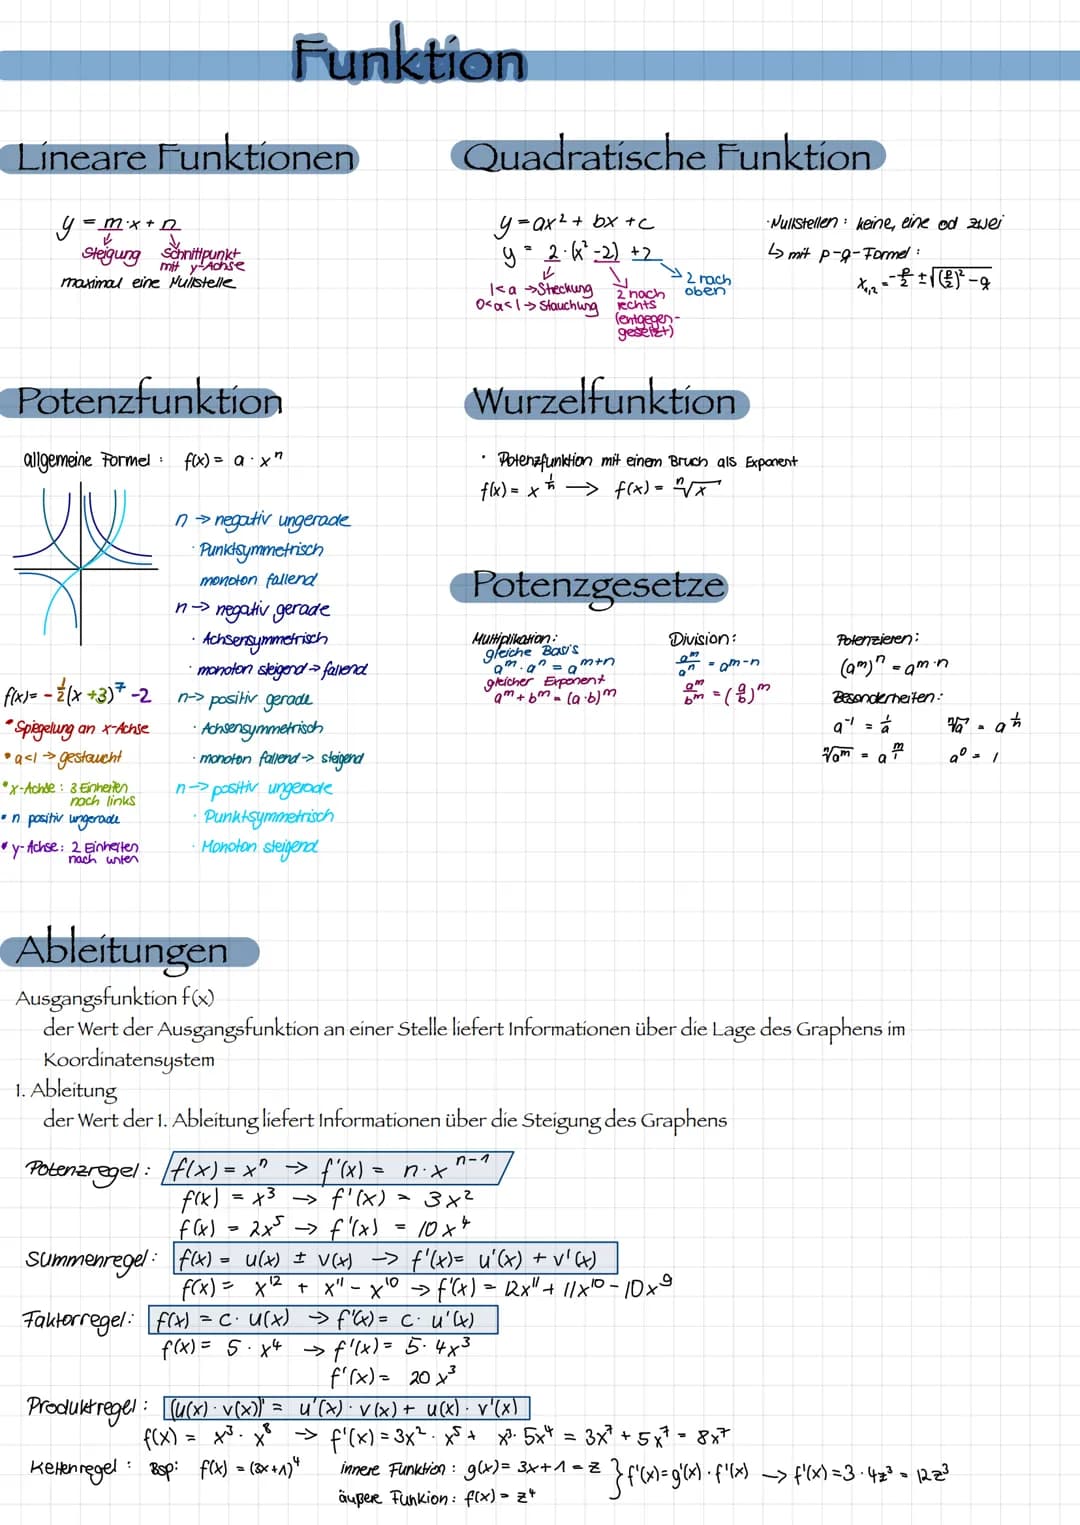 Funktion
Lineare Funktionen
y = m·x + n
Steigung Schnittpunkt
mit y-Achse
maximal eine Nullstelle
Quadratische Funktion
y = ax² + bx + c
y = 2·(x²-2) +2
1<a → Steckung
0<a<1 → Stauchung
2 nach
rechts
(entgegen-
gesetzt)
2 nach
oben
· Nullstellen : keine, eine od zwei
↳ mit p-q-Formel :
x₁,₂ = -p/2 ± √((p/2)² - q)
Potenzfunktion
allgemeine Formel : f(x) = a · xⁿ
n → negativ ungerade
· Punktsymmetrisch
monoton fallend
n → negativ gerade
· Achsensymmetrisch
· monoton steigend → fallend
n → positiv gerade
· Achsensymmetrisch
· monoton fallend → steigend
n → positiv ungerade
· Punktsymmetrisch
· Monoton steigend
f(x) = -1/2(x+3)⁷ -2
• Spiegelung an x-Achse
• a<1 → gestaucht
• x-Achse : 3 Einheiten
nach links
• n positiv ungerade
• y-Achse: 2 Einheiten
nach unten
Wurzelfunktion
· Potenzfunktion mit einem Bruch als Exponent
f(x) = x^(1/n) → f(x) = ⁿ√x
Potenzgesetze
Multiplikation:
gleiche Basis
aᵐ·aⁿ = aᵐ⁺ⁿ
gleicher Exponent
aᵐ + bᵐ = (a·b)ᵐ
Division:
aᵐ/aⁿ = aᵐ⁻ⁿ
aᵐ/bᵐ = (a/b)ᵐ
Potenzieren:
(aᵐ)ⁿ = aᵐ·ⁿ
Besonderheiten:
a⁻¹ = 1/a ⁿ√a = a^(1/n)
ⁿ√aᵐ = a^(m/1) a⁰ = 1
Ableitungen
Ausgangsfunktion f(x)
der Wert der Ausgangsfunktion an einer Stelle liefert Informationen über die Lage des Graphens im
Koordinatensystem
1. Ableitung
der Wert der 1. Ableitung liefert Informationen über die Steigung des Graphens
Potenzregel : f(x) = xⁿ → f'(x) = n·xⁿ⁻¹
f(x) = x³ → f'(x) = 3x²
f(x) = 2x⁵ → f'(x) = 10x⁴
Summenregel : f(x) = u(x) ± v(x) → f'(x) = u'(x) + v'(x)
f(x) = x¹² + x¹¹ - x¹⁰ → f'(x) = 12x¹¹ + 11x¹⁰ - 10x⁹
Faktorregel : f(x) = c · u(x) → f'(x) = c · u'(x)
f(x) = 5 · x⁴ → f'(x) = 5 · 4x³
f'(x) = 20x³
Produktregel : (u(x) · v(x))' = u'(x) · v(x) + u(x) · v'(x)
f(x) = x³ · x⁸ → f'(x) = 3x² · x⁵ + x³ · 5x⁴ = 3x⁷ + 5x⁷ = 8x⁷
Kettenregel : Bsp: f(x) = (3x+1)⁴ innere Funktion : g(x) = 3x+1 = z } f'(x) = g'(x) · f'(x) → f'(x) = 3 · 4z³ = 12z³
äußere Funkion : f(x) = z⁴